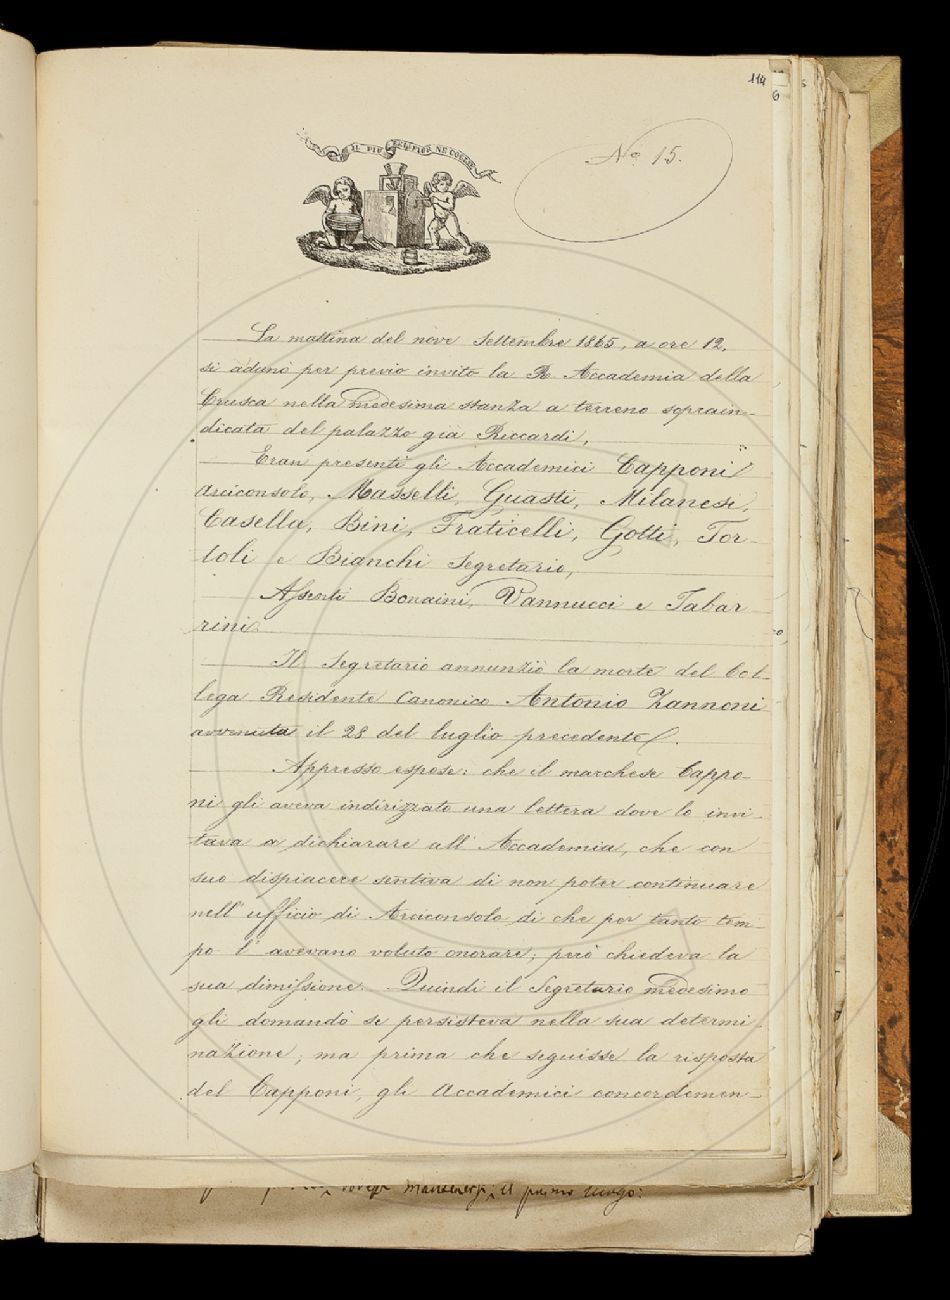 114
6
IL PIÙ BEL FIOR NE COGLIE
No 15.
La mattina del nove Settembre 1865, a ore 12,
si adunò per previo invito la R. Accademia della
Crusca nella medesima stanza a terreno soprain-
dicata del palazzo già Riccardi,
Eran presenti gli Accademici Capponi
Arciconsolo, Masselli, Guasti, Milanesi,
Casella, Bini, Fraticelli, Gotti, Tor-
toli e Bianchi Segretario,
Assenti Bonaini, Vannucci e Tabar
rini.
Il Segretario annunziò la morte del Col-
lega Residente Canonico Antonio Zannoni
avvenuta il 28 del luglio precedente.
Appresso espose: che il marchese Cappo-
ni gli aveva indirizzato una lettera dove lo invi-
tava a dichiarare all'Accademia, che con
suo dispiacere sentiva di non poter continuare
nell'ufficio di Arciconsolo di che per tanto tem-
po l'avevano voluto onorare; però chiedeva la
sua dimissione. Quindi il Segretario medesimo
gli domandò se persisteva nella sua determi-
nazione; ma prima che seguisse la risposta
del Capponi, gli Accademici concordemen-
primo luogo: